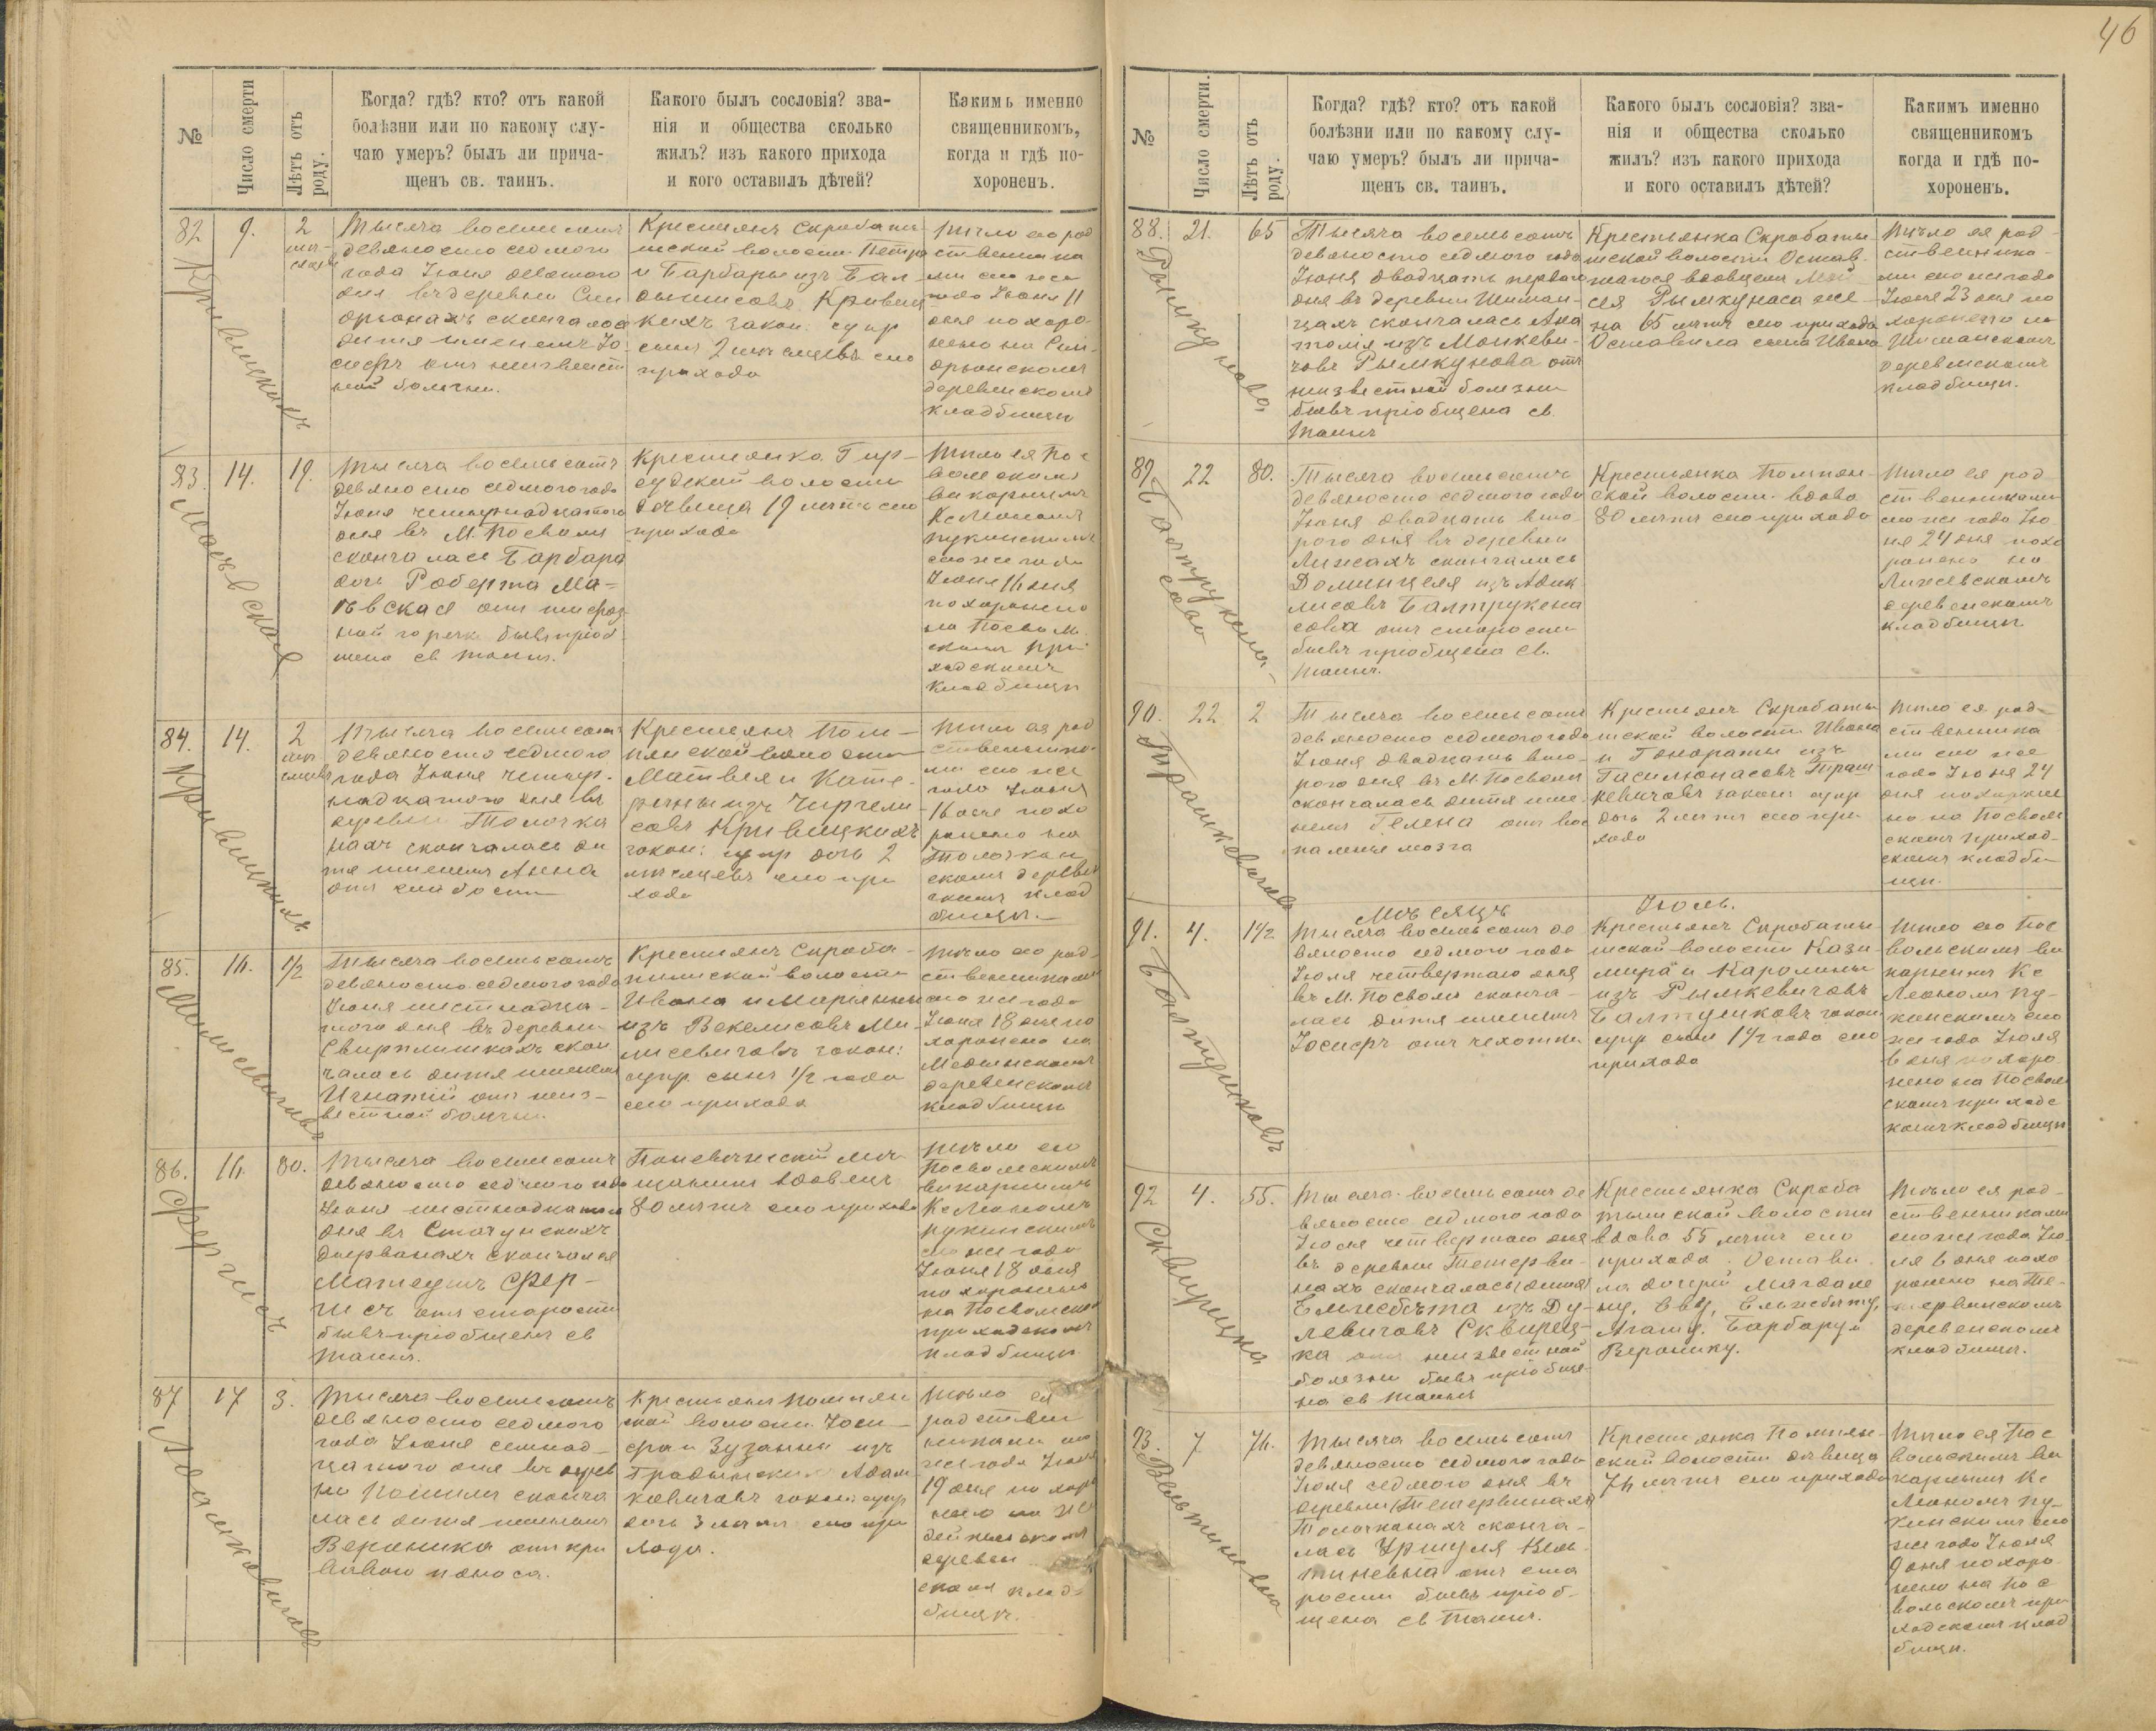 46
№
Число смерти
Лѣтъ отъ роду.
Когда? гдѣ? кто? отъ какой
болѣзни или по какому слу-
чаю умеръ? былъ ли прича-
щенъ св. таинъ.
Какого былъ сословія? зва-
нія и общества сколько
жилъ? изъ какого прихода
и кого оставилъ дѣтей?
Какимъ именно
священникомъ,
когда и гдѣ по-
хороненъ.
82
9.
2
мѣ-
сяцa
Тысяча восемьсотъ
девяносто седмого
года Іюня девятаго
дня въ деревни
скончалось
дитя именемъ Іо-
сифъ отъ неизвѣст
ной болѣзни.
Крестьянъ Скробаты
шской волости Петра
и Барбары изъ
Кривиц
кихъ закон: супр
сынъ 2 мѣсяцевъ сего
прихода
Тѣло его род
ственника
ми сего же
года Іюня 11
дня похоро-
нено на
деревенскомъ
кладбищи
Кривицкихъ
83.
14.
19.
Тысяча восемьсотъ
девяносто седмого года
Іюня четырнадцатого
дня въ М. Посволи
скончалась Барбара
дочь Роберта Ма-
евская отъ тифоз
ной горячки бывъ пріоб
щена св таинъ.
Крестьянка
волости
дѣвица 19 лѣтъ сего
прихода
Тѣло ея По-
вольскимъ
викарнимъ
Кс Леономъ
пукинскимъ
сего же года
Іюня 16 дня
похоронено
на Посволь
скомъ при-
ходскомъ
кладбищи
Маевская
84.
14.
2
мѣ
сяцевъ
Тысяча восемьсотъ
девяносто седмого
года Іюня четыр-
надцатого дня въ
деревни Толочка
нахъ скончалась ди
тя именемъ Анна
отъ слабости
Крестьянъ Пом-
пянской волости
Матвея и Кате-
рины изъ
Кривицкихъ
закон: супр дочь 2
мѣсяцевъ сего при
хода
Тѣло ея род
ственника-
ми сего же
года Іюня
16 дня похо
ронено на
Толочкан
скомъ деревен
скомъ клад
бищи.
Кривицкихъ
85.
16.
1/2
Тысяча восемьсотъ
девяносто седмого года
Іюня шестнадца-
того дня въ деревни
Свирплишкахъ скон
чалось дитя именемъ
Игнатій отъ неиз-
вестной болѣзни.
Крестьянъ Скроба-
тишской волости
Ивана и Маріянны
изъ Векелисовъ Ми-
лисевичовъ закон:
супр. сынъ 1/2 года
сего прихода
Тѣло его род-
ственниками
сего же года
Іюня 18 дня по
хоронено на
деревенскомъ
кладбищи
86.
16.
80.
Тысяча восемьсотъ
девяносто седмого года
Іюня шестнадцатого
дня въ Стачунскихъ
дверванахъ скончался
Матеушъ Сфер-
гисъ отъ старости
бывъ пріобщенъ св
таинъ.
Поневѣжскій мѣ-
щанинъ вдовецъ
80 лѣтъ сего прихода
Тѣло его
Посвольскимъ
викарнимъ
Кс Леономъ
пукинскимъ
сего же года
Іюня 18 дня
похоронено
на Посвольском
приходскомъ
кладбищи.
87
17
3.
Тысяча восемьсотъ
девяносто седмого
года Іюня семнад-
цатого дня въ дерев
ни сконча
лась дитя именемъ
Вероника отъ кро
ваваго поноса.
Крестьянъ Помпян
ской волости Іоси-
фа и Зузанны изъ
Адам
ковичовъ закон: супр
дочь 3 лѣтъ сего при
хода.
Тѣло ея
родствен
никами сего
же года Іюня
19 дня похоро
нено на
деревен
скомъ клад-
бищи.
Адамковичовъ
№
Число смерти.
Лѣтъ отъ роду.
Когда? гдѣ? кто? отъ какой
болѣзни или по какому слу-
чаю умеръ? былъ ли прича-
щенъ св. таинъ.
Какого былъ сословія? зва-
нія и общества сколько
жилъ? изъ какого прихода
и кого оставилъ дѣтей?
Какимъ именно
священникомъ
когда и гдѣ по-
хороненъ.
88.
21.
65
Тысяча восемьсотъ
девяносто седмого года
Іюня двадцать перваго
дня въ деревни Шиман-
цахъ скончалась Ана
толія изъ Монкеви-
човъ Рымкунова отъ
неизвестной болезни
бывъ пріобщена св.
таинъ
Крестьянка Скробаты
шской волости Остав-
шаяся вдовцемъ
Рымкунаса же
на 65 лѣтъ сего прихода
Оставила сына Ивана
Тѣло ея род-
ственника-
ми сего же года
Іюня 23 дня по
хоронено на
Шиманскомъ
деревенскомъ
кладбищи.
Рымкунова
89.
22
80.
Тысяча восемьсотъ
девяносто седмого года
Іюня двадцать вто-
рого дня въ деревни
скончалась
Доминцеля изъ Адик
лисовъ Балтрукена
сова отъ старости
бывъ пріобщена св.
таинъ.
Крестьянка Помпян-
ской волости вдова
80 лѣтъ сего прихода
Тѣло ея род-
ственниками
сего же года Ію
ня 24 дня похо
ронено на
деревенскомъ
кладбищи.
Балтрукена-
сова
90.
22
2
Тысяча восемьсотъ
девяносто седмого года
Іюня двадцать вто-
рого дня въ М. Посволи
скончалась дитя име-
немъ Гелена отъ вос
паленія мозга
Крестьянъ Скробаты
шской волости Ивана
и Гонораты изъ
Гасилюнасовъ Траш
кевичовъ закон: супр
дочь 2 лѣтъ сего при
хода
Тѣло ея род-
ственника
ми сего же
года Іюня 24
дня похороне
но на Посволь
скомъ приход-
скомъ кладби
щи.
Трашкевичовъ
Мѣсяцъ Іюль.
91.
4.
1 1/2
Тысяча восемьсотъ де
вяносто седмого года
Іюля четвертаго дня
въ М. Посволи сконча-
лась дитя именемъ
Іосифъ отъ чехотки
Крестьянъ Скробаты
шской волости Кази-
мира и Каролины
изъ Рымкевичовъ
Балтушковъ закон:
супр сынъ 1 1/2 года сего
прихода
Тѣло его Пос
вольскимъ ви
карнимъ Кс
Леономъ Пу-
кинскимъ сего
же года Іюля
6 дня похоро
нено на Посволь
скомъ приходс
комъ кладбищи
Балтушковъ
92
4.
55.
Тысяча восемьсотъ де
вяносто седмого года
Іюля четвертаго дня
въ деревни Тетерви-
нахъ скончалась
Ельжбѣта изъ Ду-
левичовъ Сквирец-
ка отъ неизвестной
болезни бывъ пріобще-
на св таинъ
Крестьянка Скроба
тышской волости
вдова 55 лѣтъ сего
прихода. Остави-
ла дочерей Магдале
ну, Еву, Ельжбѣту,
Агату, Барбару и
Веронику.
Тѣло ея род-
ственниками
сего же года Ію
ля 6 дня похо
ронено на Те-
тервинскомъ
деревенскомъ
кладбищи.
Сквирецка
93.
7
76.
Тысяча восемьсотъ
девяносто седмого года
Іюля седмого дня въ
деревни Тетервинахъ
Толочканахъ сконча-
лась Уршуля Вель
тиневна отъ ста
рости бывъ пріоб-
щена св таинъ.
Крестьянка Помпян-
ской волости дѣвица
76 лѣтъ сего прихода
Тѣло ея Пос
вольскимъ ви
карнимъ Кс
Леономъ Пу-
кинскимъ сего
же года Іюля
9 дня похоро
нено на Пос
вольскомъ при
ходскомъ клад
бищи.
Вельтиневна